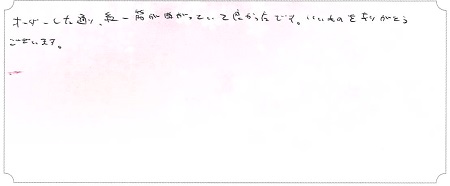 オーダーした通り、私一筋が曲がっていて良かったです。いいものをありがとう
ございます。